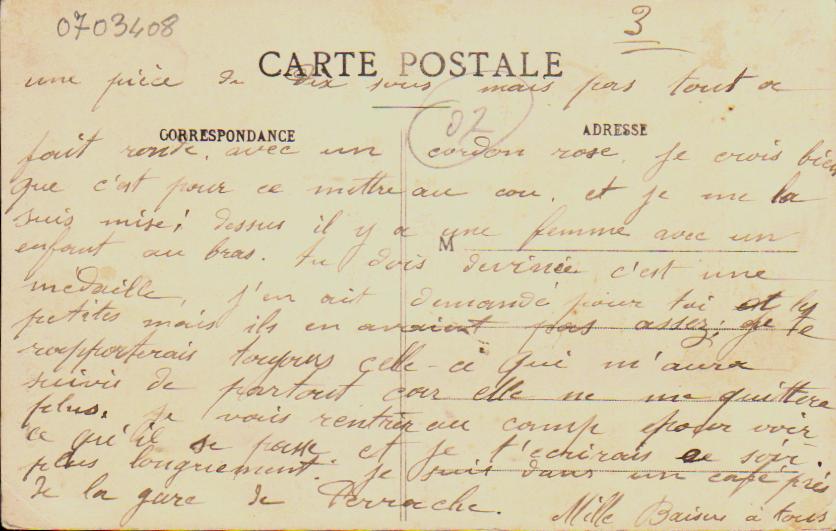 0703408
3
CARTE POSTALE
une pièce de dix sous mais pas tout a
02
CORRESPONDANCE
ADRESSE
fait ronde, avec un cordon rose. Je crois bien
que c'est pour ce mettre au cou, et je me la
suis mise; dessus il y a une femme avec un
M
enfant au bras. tu dois devinée c'est une
medaille, j'en ait demandé pour toi et les
petites mais ils en avaient pas assez; je te
rapporterais toujours celle-ci qui m'aura
suivis de partout car elle ne me quittera
plus. Je vais rentrer au camp pour voir
ce qu'il se passe et je t'ecrirais ce soir
plus longuement. Je suis dans un café près
de la gare de Perrache. Mille Baisers à tous